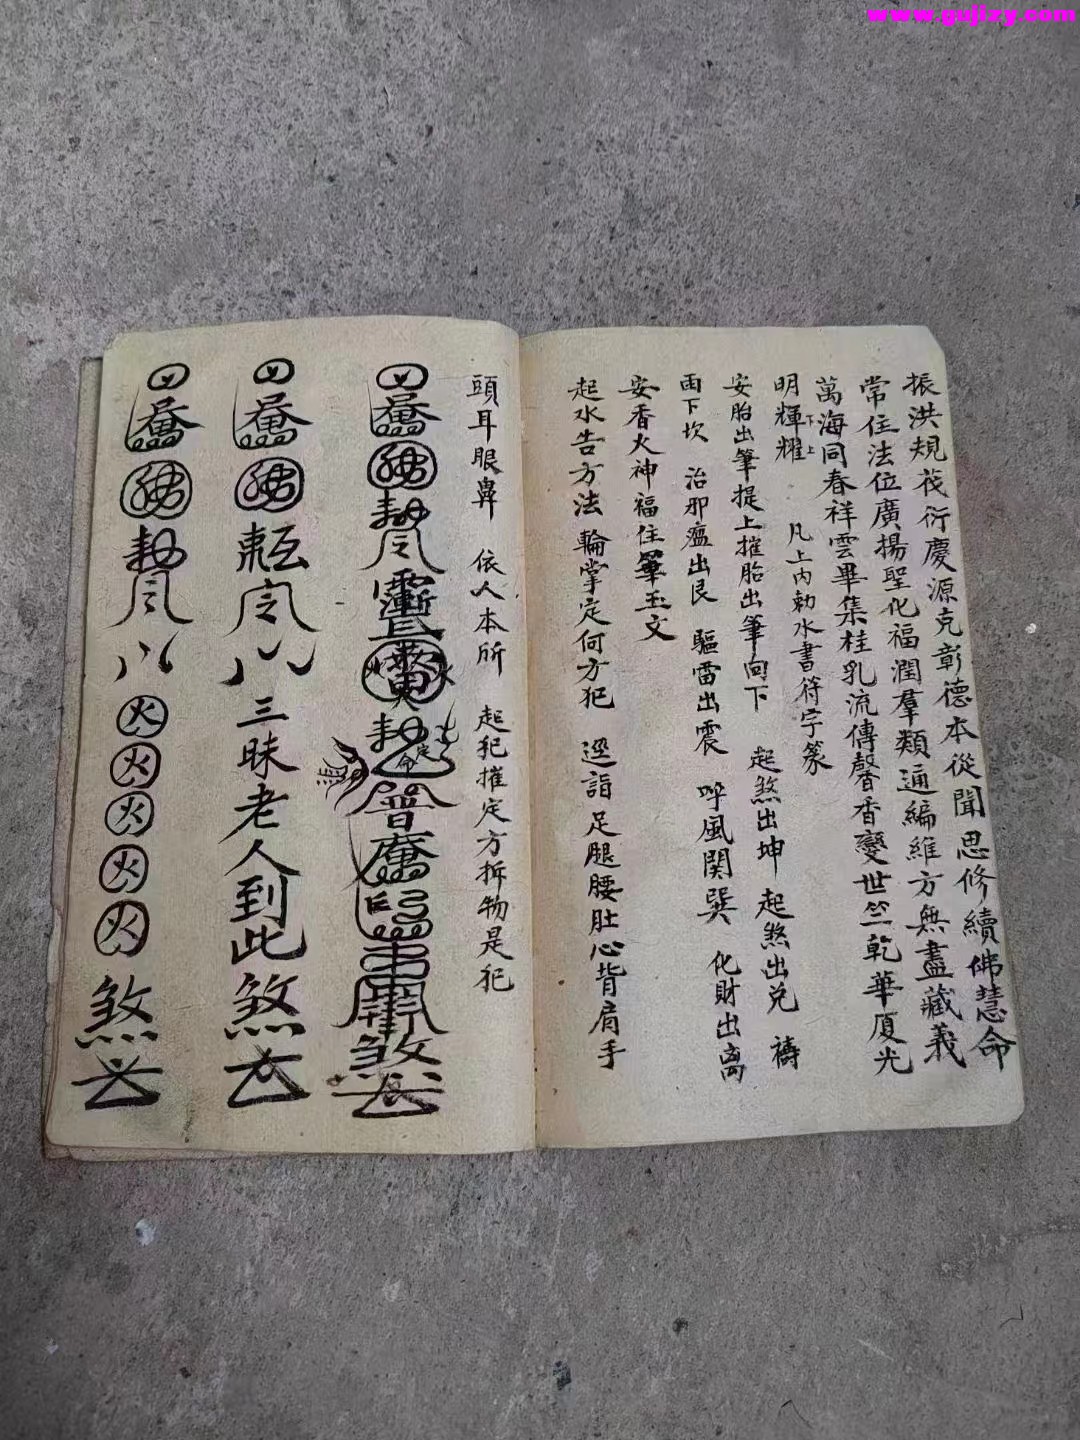 www.gujizy.com
振洪規茷衍慶源克彰德本從聞思修續佛慧命
常住法位廣揚聖化福潤羣類通編維方無盡藏義
萬海同春祥雲畢集桂乳流傳馨香變世竺乾華厦光
明輝耀 下上 凡上内勅水書符字篆
安胎出筆提上摧胎出筆向下 起煞出坤 起煞出兑 禱
雨下坎 治邪瘟出艮 驅雷出震 呼風関巽 化財出离
安香火神福住筆玉文
起水告方法 輪掌定何方犯 逕詣足腿腰肚心背肩手
頭耳眼鼻 依人本所 起犯摧定方拆物是犯
勅令 普 煞
令 三昧老人到此煞
勅令 火火火火火煞